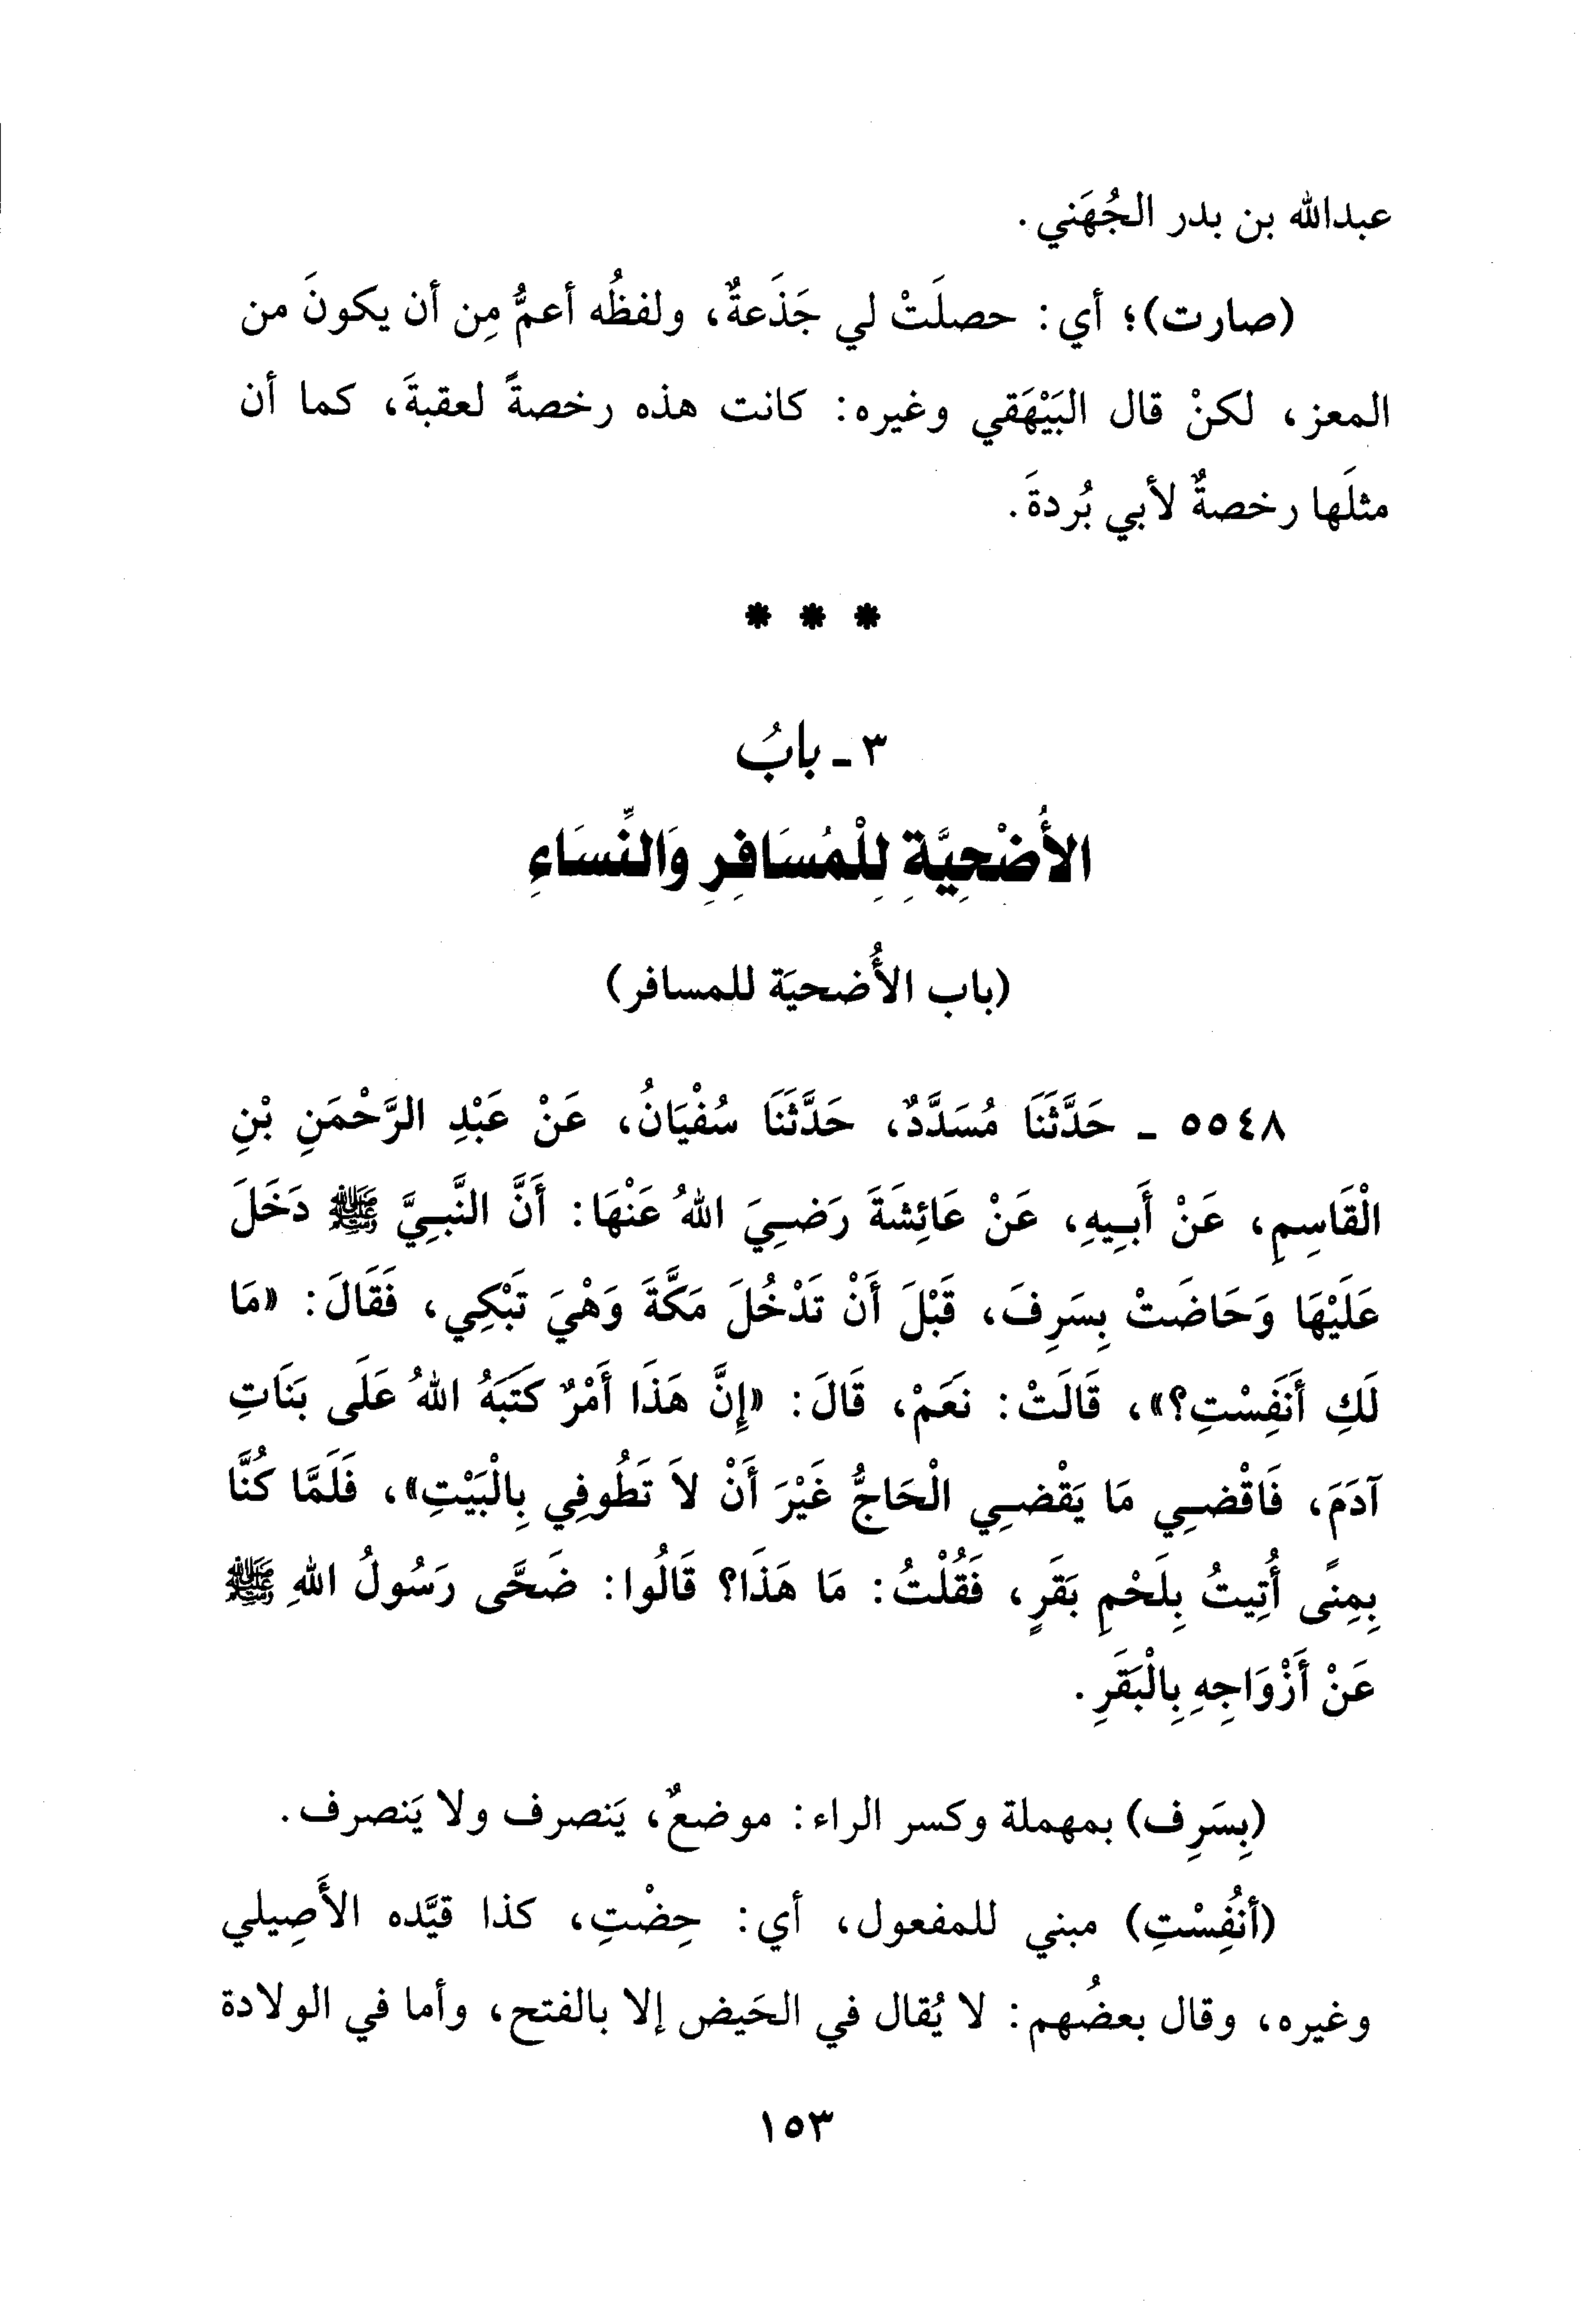 عبدالله بن بدر الجُهَني.
(صارت)؛ أي: حصلَتْ لي جَذَعةٌ، ولفظُه أعمُّ مِن أن يكونَ من
المعز، لكنْ قال البَيْهَقي وغيره: كانت هذه رخصةً لعقبةَ، كما أن
مثلَها رخصةٌ لأبي بُردةَ.
* * *
٣ ـ بابُ
الأُضْحِيَّةِ لِلْمُسَافِرِ وَالنِّسَاءِ
(باب الأُضحيَة للمسافر)
٥٥٤٨ ـ حَدَّثَنَا مُسَدَّدٌ، حَدَّثَنَا سُفْيَانُ، عَنْ عَبْدِ الرَّحْمَنِ بْنِ
الْقَاسِمِ، عَنْ أَبِيهِ، عَنْ عَائِشَةَ رَضِيَ اللهُ عَنْهَا: أَنَّ النَّبِيَّ ﷺ دَخَلَ
عَلَيْهَا وَحَاضَتْ بِسَرِفَ، قَبْلَ أَنْ تَدْخُلَ مَكَّةَ وَهْيَ تَبْكِي، فَقَالَ: «مَا
لَكِ أَنَفِسْتِ؟»، قَالَتْ: نَعَمْ، قَالَ: «إِنَّ هَذَا أَمْرٌ كَتَبَهُ اللهُ عَلَى بَنَاتِ
آدَمَ، فَاقْضِي مَا يَقْضِي الْحَاجُّ غَيْرَ أَنْ لاَ تَطُوفِي بِالْبَيْتِ»، فَلَمَّا كُنَّا
بِمِنًى أُتِيتُ بِلَحْمِ بَقَرٍ، فَقُلْتُ: مَا هَذَا؟ قَالُوا: ضَحَّى رَسُولُ اللهِ ﷺ
عَنْ أَزْوَاجِهِ بِالْبَقَرِ.
(بِسَرِف) بمهملة وكسر الراء: موضعٌ، يَنصرف ولا يَنصرف.
(أنُفِسْتِ) مبني للمفعول، أي: حِضْتِ، كذا قيَّده الأَصِيلي
وغيره، وقال بعضُهم: لا يُقال في الحَيض إلا بالفتح، وأما في الولادة
١٥٣